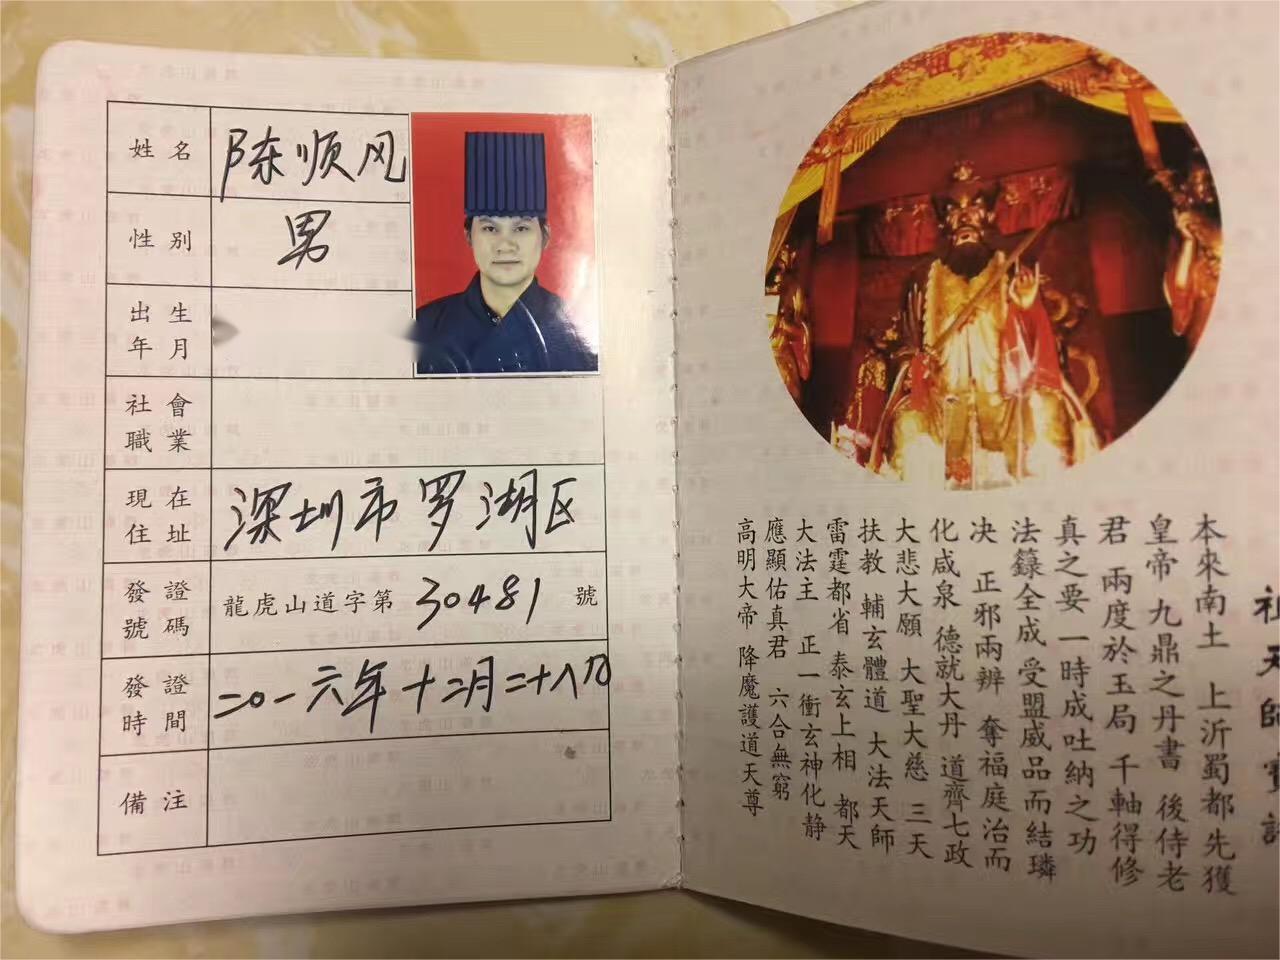 姓名 陈顺风
性别 男
出生
年月
社會
職業
現在
住址 深圳市罗湖区
發證
號碼 龍虎山道字第 30481 號
發證
時間 二〇一六年十二月二十八日
備注
祖天師寶誥
本來南土 上沂蜀都先獲
皇帝 九鼎之丹書 後侍老
君 兩度於玉局 千軸得修
真之要 一時成吐納之功
法籙全成 受盟威品而結璘
决 正邪兩辨 奪福庭治而
化咸泉 德就大丹 道齊七政
大悲大願 大聖大慈 三天
扶教 輔玄體道 大法天師
雷霆都省 泰玄上相 都天
大法主 正一衝玄神化静
應顯佑真君 六合無窮
高明大帝 降魔護道天尊